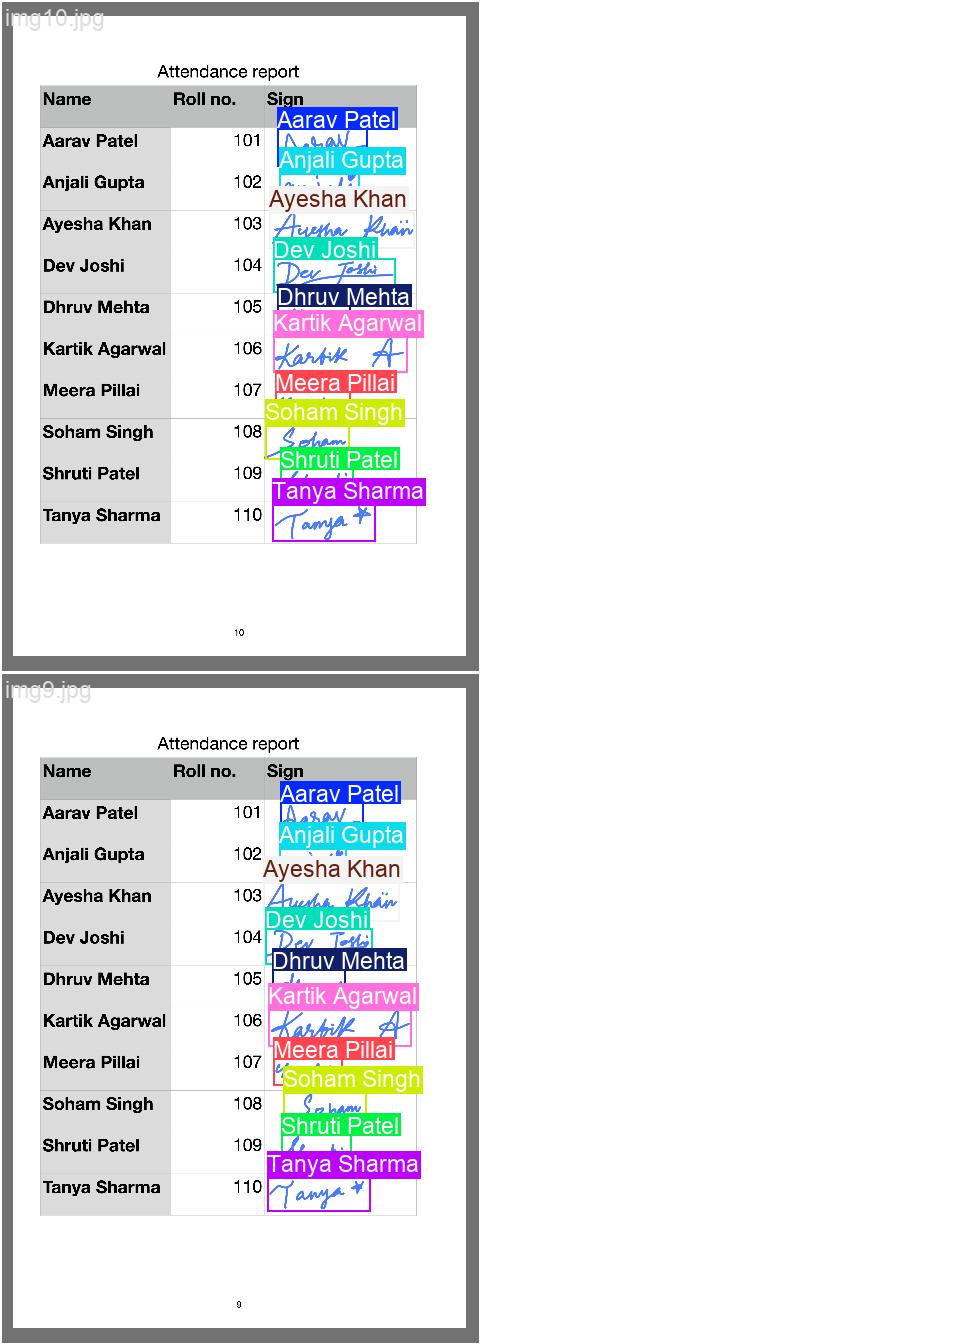 img10.jpg
Attendance report
Name Roll no. Sign
Aarav Patel
Aarav Patel 101 Aarav
Anjali Gupta
Anjali Gupta 102
Ayesha Khan
Ayesha Khan 103 Ayesha Khan
Dev Joshi
Dev Joshi 104 Dev Joshi
Dhruv Mehta
Dhruv Mehta 105
Kartik Agarwal
Kartik Agarwal 106 Kartik A
Meera Pillai
Meera Pillai 107
Soham Singh
Soham Singh 108 Soham
Shruti Patel
Shruti Patel 109
Tanya Sharma
Tanya Sharma 110 Tanya
10
img9.jpg
Attendance report
Name Roll no. Sign
Aarav Patel
Aarav Patel 101 Aarav
Anjali Gupta
Anjali Gupta 102
Ayesha Khan
Ayesha Khan 103 Ayesha Khan
Dev Joshi
Dev Joshi 104 Dev Joshi
Dhruv Mehta
Dhruv Mehta 105
Kartik Agarwal
Kartik Agarwal 106 Kartik A
Meera Pillai
Meera Pillai 107
Soham Singh
Soham Singh 108 Soham
Shruti Patel
Shruti Patel 109
Tanya Sharma
Tanya Sharma 110 Tanya
9